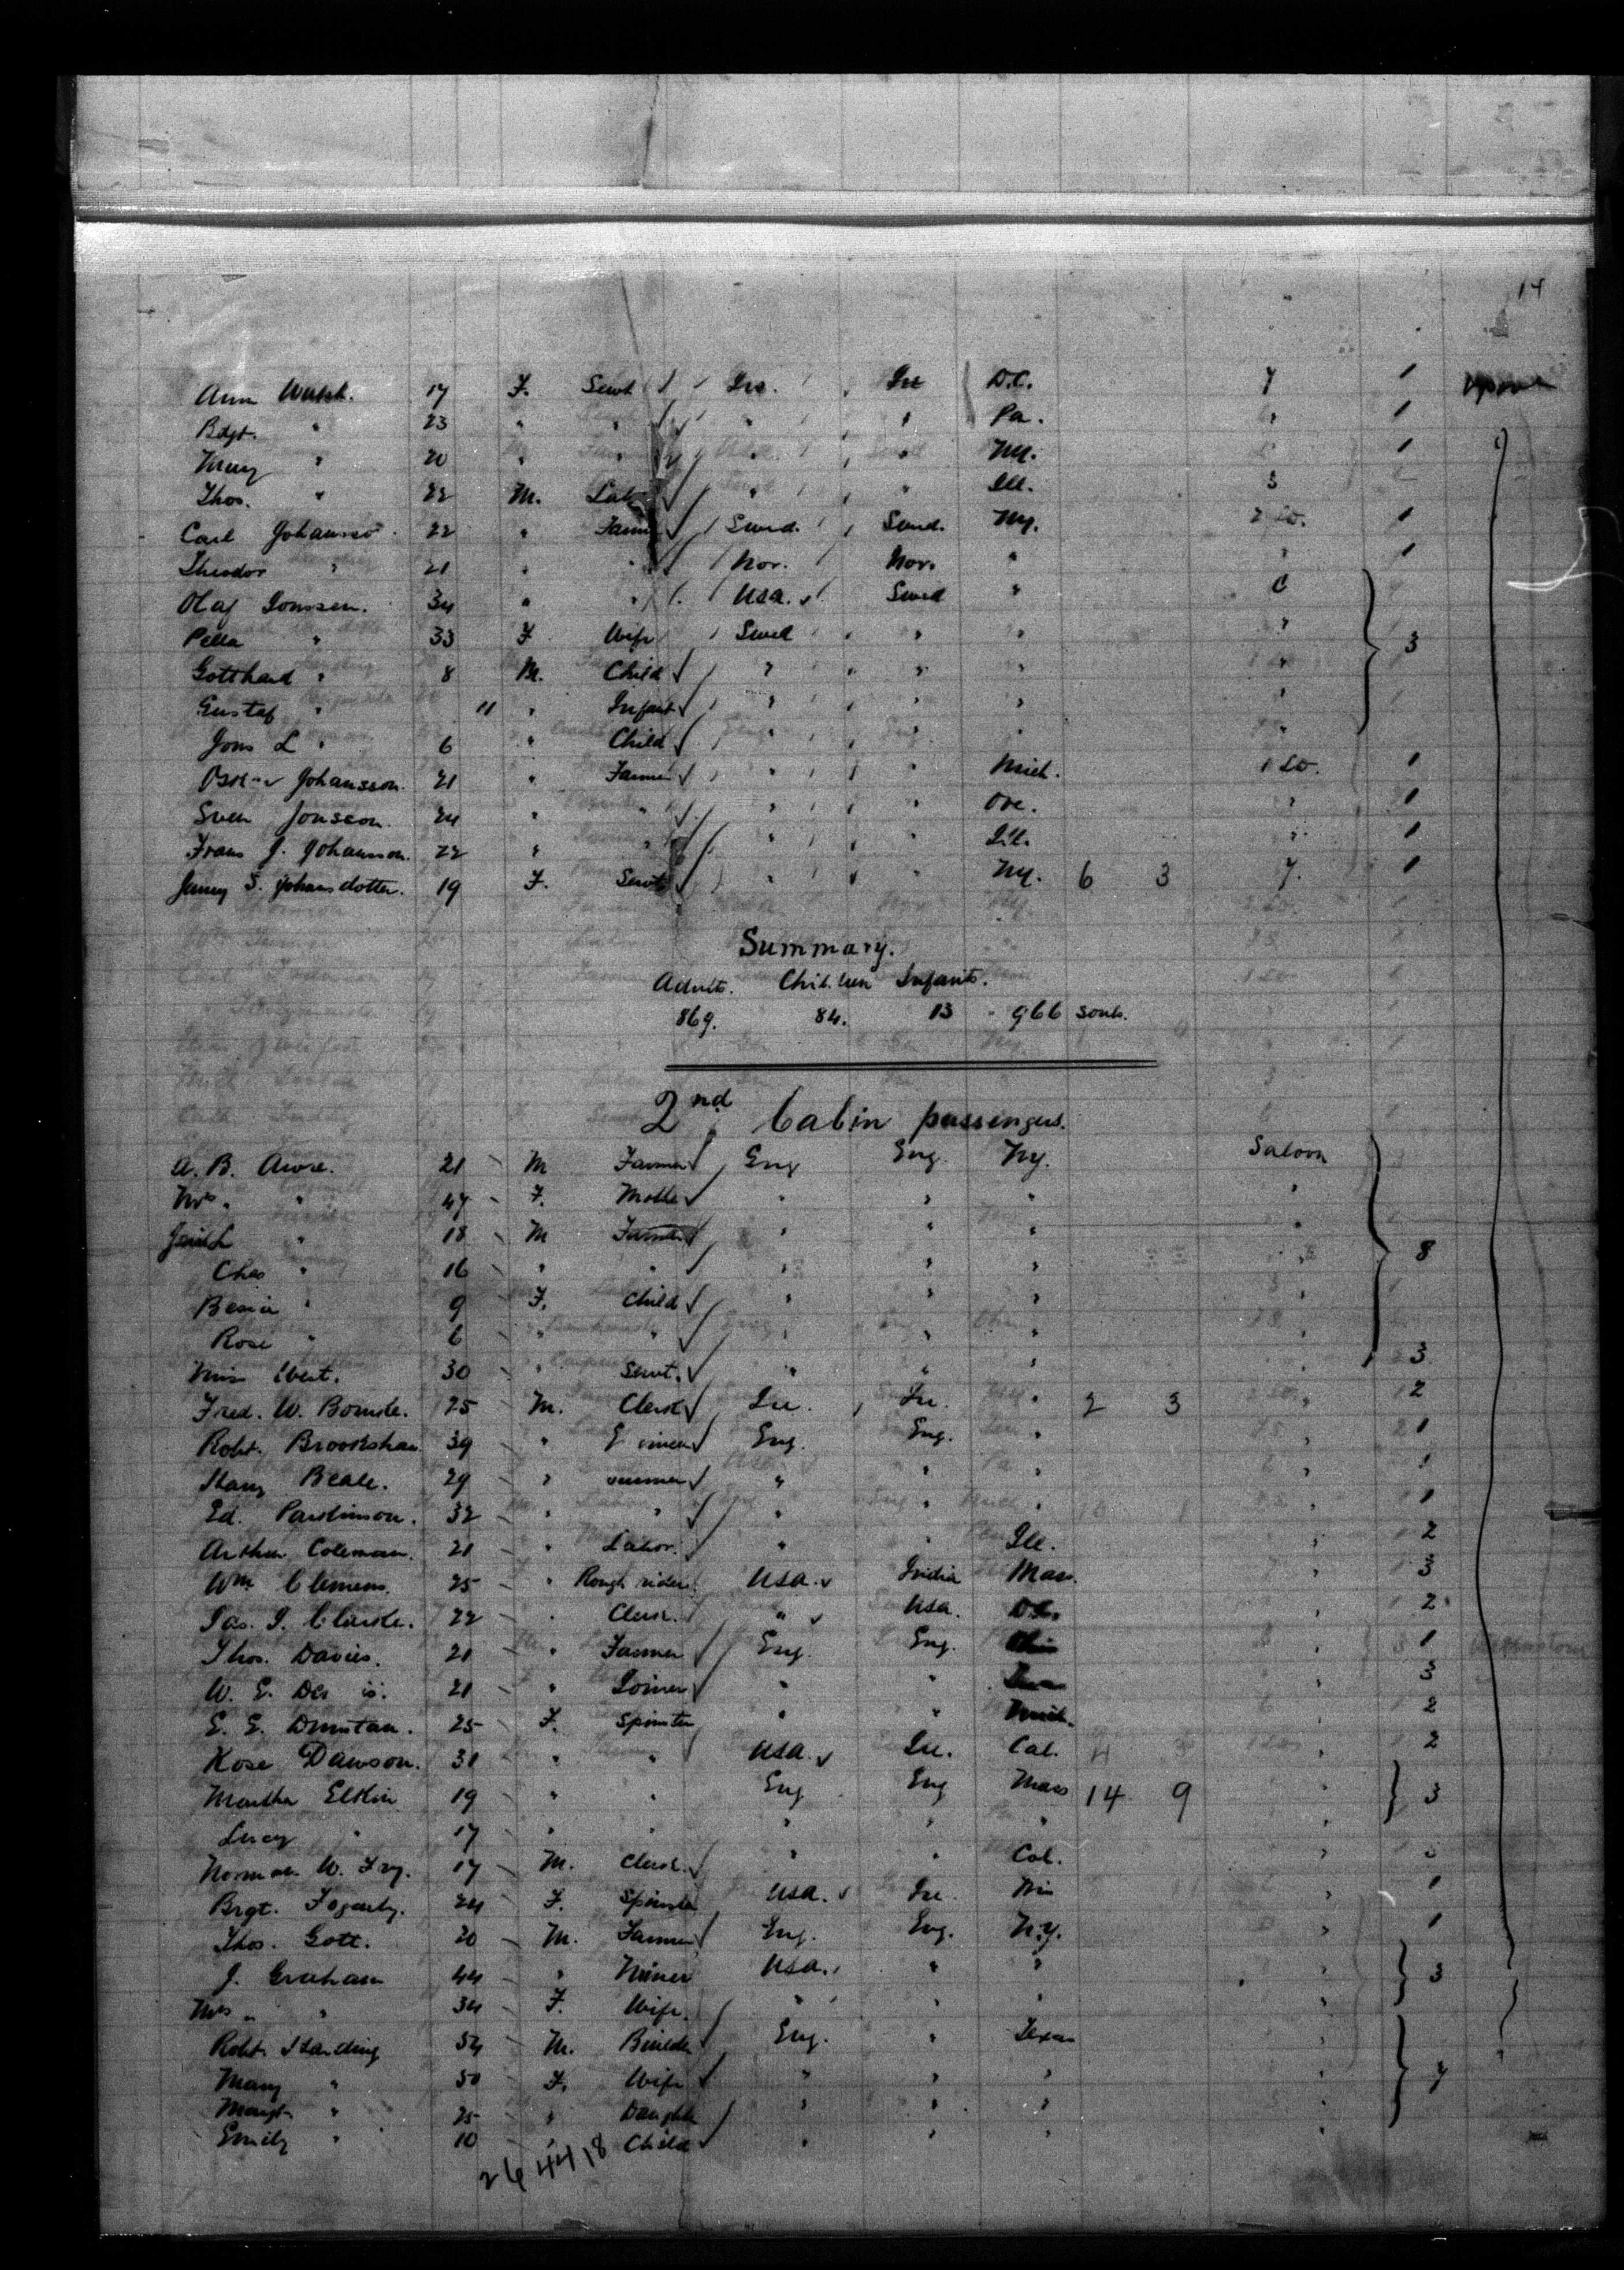 14
Ann Walsh. 17 F. Servt Ire. Ire D.C. 7 1
Bdgt. " 23 " " " " Pa. " 1
Mary " 20 " " " " NY. 1
Thos. " 22 M. Lab " " Ill. 3 1
Carl Johansso 22 " Farmer Swed. Swed. NY. 2 Lo. 1
Theodor " 21 " " Nor. Nor. " " 1
Olaf Jonssen. 34 " " USA. Swed " C
Pella " 33 F Wife Swed " " " 3
Gotthard " 8 M. Child " " " "
Gustaf " 11 " Infant " " " "
Jons L " 6 " Child " " " "
Johansson. 21 " Farmer " " Mich. 1 Lo. 1
Sven Jonsson. 24 " " " " Ore. " 1
Frans J. Johansson. 22 " " " " Ill. " 1
Jenny S. Johansdotter. 19 F. Servt " " NY. 6 3 7. 1
Summary.
Adults. Children Infants.
869. 84. 13 966 souls.
2nd Cabin passengers.
A. B. 21 M Farmer Eng Eng. NY. Saloon
Mrs. " 47 F. Mother " " " "
" 18 M Farmer " " " "
Chas " 16 " " " " " " 8
Bessie " 9 F. Child " " " "
Rose " 6 " " " " " "
Miss West. 30 " Servt. " " " " 3
Fred. W. 25 M. Clerk Ire. Ire. " 2 3 " 2
Robt. Brookshaw 39 " E ineer Eng. Eng. " " 1
Harry Beale. 29 " " " " " 1
Ed. Parkinson. 32 " " " " " " 1
Arthur Coleman. 21 " Labor. " " Ill. " 2
Wm Clemens. 25 " Rough rider USA. India Mass. " 3
Jas. J. Clarke. 22 " Clerk. " USA. D.C. " 2
Thos. Davies. 21 " Farmer Eng. Eng. " 1
W. E. 21 " Joiner " " " 3
E. E. Dunstan. 25 F. Spinster " " Mich. " 2
Rose Dawson. 31 " " USA. Ire. Cal. " 2
Martha Elkin 19 " " Eng Eng Mass 14 9 " 3
Lucy " 17 " " " " " "
Norman W. Fry. 17 M. Clerk. " " Col. "
Brgt. Fogarty. 24 F. Spinster USA. Ire. " 1
Thos. Gott. 20 M. Farmer Eng. Eng. N.Y. " 1
J. Graham 44 " Miner USA. " " " 3
Mrs " " 34 F. Wife. " " " "
Robt. Harding 54 M. Builder Eng. " Texas "
Mary " 50 F. Wife " " " " 4
Margt. " 25 " Daughter " " " "
Emily " 10 " Child " " " "
26 44 18